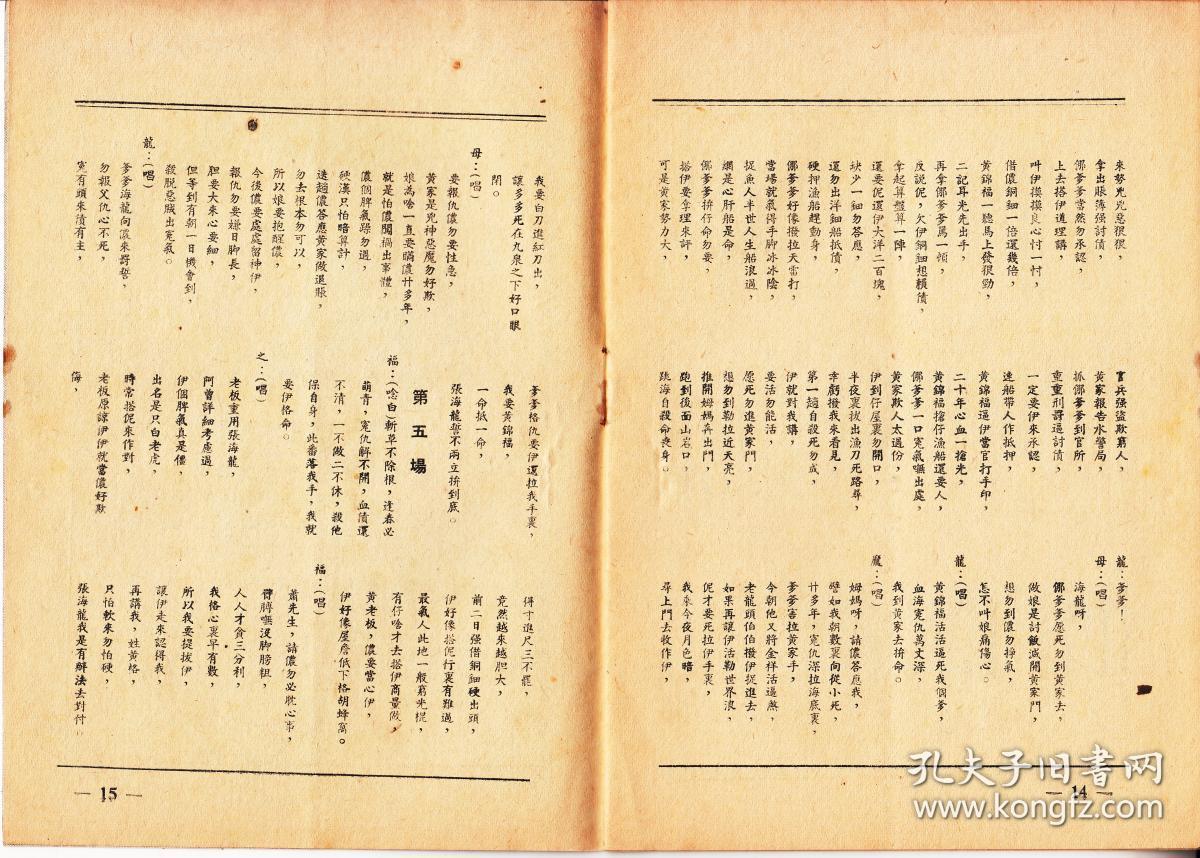 來勢兇兇惡狠狠，
拿出賬簿强討債，
㑚爹爹當然勿承認，
上去搭伊道理講，
叫伊摸摸良心忖一忖，
借儂銅鈿一倍還幾倍，
黃錦福一聽馬上發狠勁，
二記耳光先出手，
再拿㑚爹爹罵一頓，
反說伲，欠伊銅鈿想賴債，
拿起算盤算一陣，
還要伲還伊大洋二百塊，
缺少一鈿勿答應，
還勿出洋鈿船抵債，
硬押漁船趕動身，
㑚爹爹好像撥拉天雷打，
當場就氣得手脚冰冰陰，
捉魚人半世人生船浪過，
網是心肝船是命，
㑚爹爹拚行命勿要，
搭伊要拿理來評，
可是黃家勢力大，
言兵强盜欺窮人，
黃家報告水警局，
抓㑚爹爹到官所，
重重刑罸逼討債，
一定要伊來承認，
連船帶人作抵押，
黃錦福逼伊當官打手印，
二十年心血一搶光，
黃錦福搶仔漁船還要人，
㑚爹爹一口冤氣嘸出處，
黃家欺人太過份，
伊到仔屋裏勿開口，
半夜裏拔出漁刀死路尋，
幸虧撥我來看見，
第一趟自殺死勿成，
伊就對我講，
要活勿能活，
愿死勿進黃家門，
想勿到勒拉近天亮，
推開姆媽奔出門，
跑到後面山岩口，
跳海自殺命喪身。
龍：爹爹！
母：（唱）
海龍呀，
㑚爹爹愿死勿到黃家去，
做娘是討飯滅開黃家門，
想勿到儂勿掙氣，
怎不叫娘痛傷心。
龍：（唱）
黃錦福活活逼死我個爹，
血海冤仇萬丈深，
我到黃家去拚命。
鳳：（唱）
姆媽呀，請儂答應我，
譬如我朝數裏向從小死，
廿多年，冤仇深拉海底裏，
爹爹害拉黃家手，
今朝他又將金祥活逼煞，
老龍頭伯伯撥伊捉進去，
如果再讓伊活勒世界浪，
伲才要死拉伊手裏，
我來今夜月色暗，
尋上門去收作伊，
— 14 —
我要白刀進紅刀出，
讓多多死在九泉之下好口眼
閉。
母：（唱）
要報仇儂勿要性急，
黃家是兇神惡魔勿好欺，
娘爲啥一直要瞞儂廿多年，
就是怕儂闖禍出事體，
儂個脾氣躁勿過，
硬漢只怕暗算計，
逃趟儂答應黃家做退賬，
勿去根本勿可以，
所以娘要抱醒儂，
今後儂要處處留神伊，
報仇勿要嫌日脚長，
胆要大來心要細，
但等到有朝一日機會到，
殺脫惡賊出冤氣。
龍：（唱）
爹爹海龍向儂來罸誓，
勿報父仇心不死，
冤有頭來債有主，
爹爹格仇要伊還拉我手裏，
我要黃錦福，
一命抵一命，
張海龍誓不兩立拚到底。
第五場
福：（唸白）斬草不除根，逢春必
萌青，寃仇解不開，血債還
不清，一不做二不休，殺他
保自身，此番落我手，我就
要伊格命。
之：（唱）
老板重用張海龍，
阿曾詳細考慮過，
伊個脾氣真是僵，
出名是只白老虎，
時常搭伲來作對，
老板原諒伊伊就當儂好欺
侮，
得寸進尺三不罷，
竟然越來越胆大，
前二日强借銅鈿硬出頭，
伊好像搭伲行裏有難過，
最氣人此地一般窮光棍，
有仔啥才去搭伊商量做，
黃老板，儂要當心伊，
伊好像屋詹低下格胡蜂窩。
福：（唱）
蕭先生，請儂勿必耽心事，
臂膊嘸沒脚膀粗，
人人才貪三分利，
我格心裏早有數，
所以我要提拔伊，
讓伊走來認得我，
再講我，姓黃格，
只怕軟來勿怕硬，
張海龍我是有辦法去對付。
— 15 —
孔夫子旧書网
www.kongfz.com